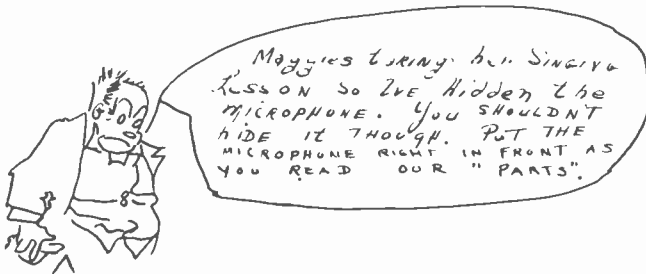 Maggies taking her Singing
Lesson so I've Hidden the
MICROPHONE. You SHOULDN'T
HIDE it THOUGH. PUT THE
MICROPHONE RIGHT IN FRONT AS
YOU READ OUR "PARTS".